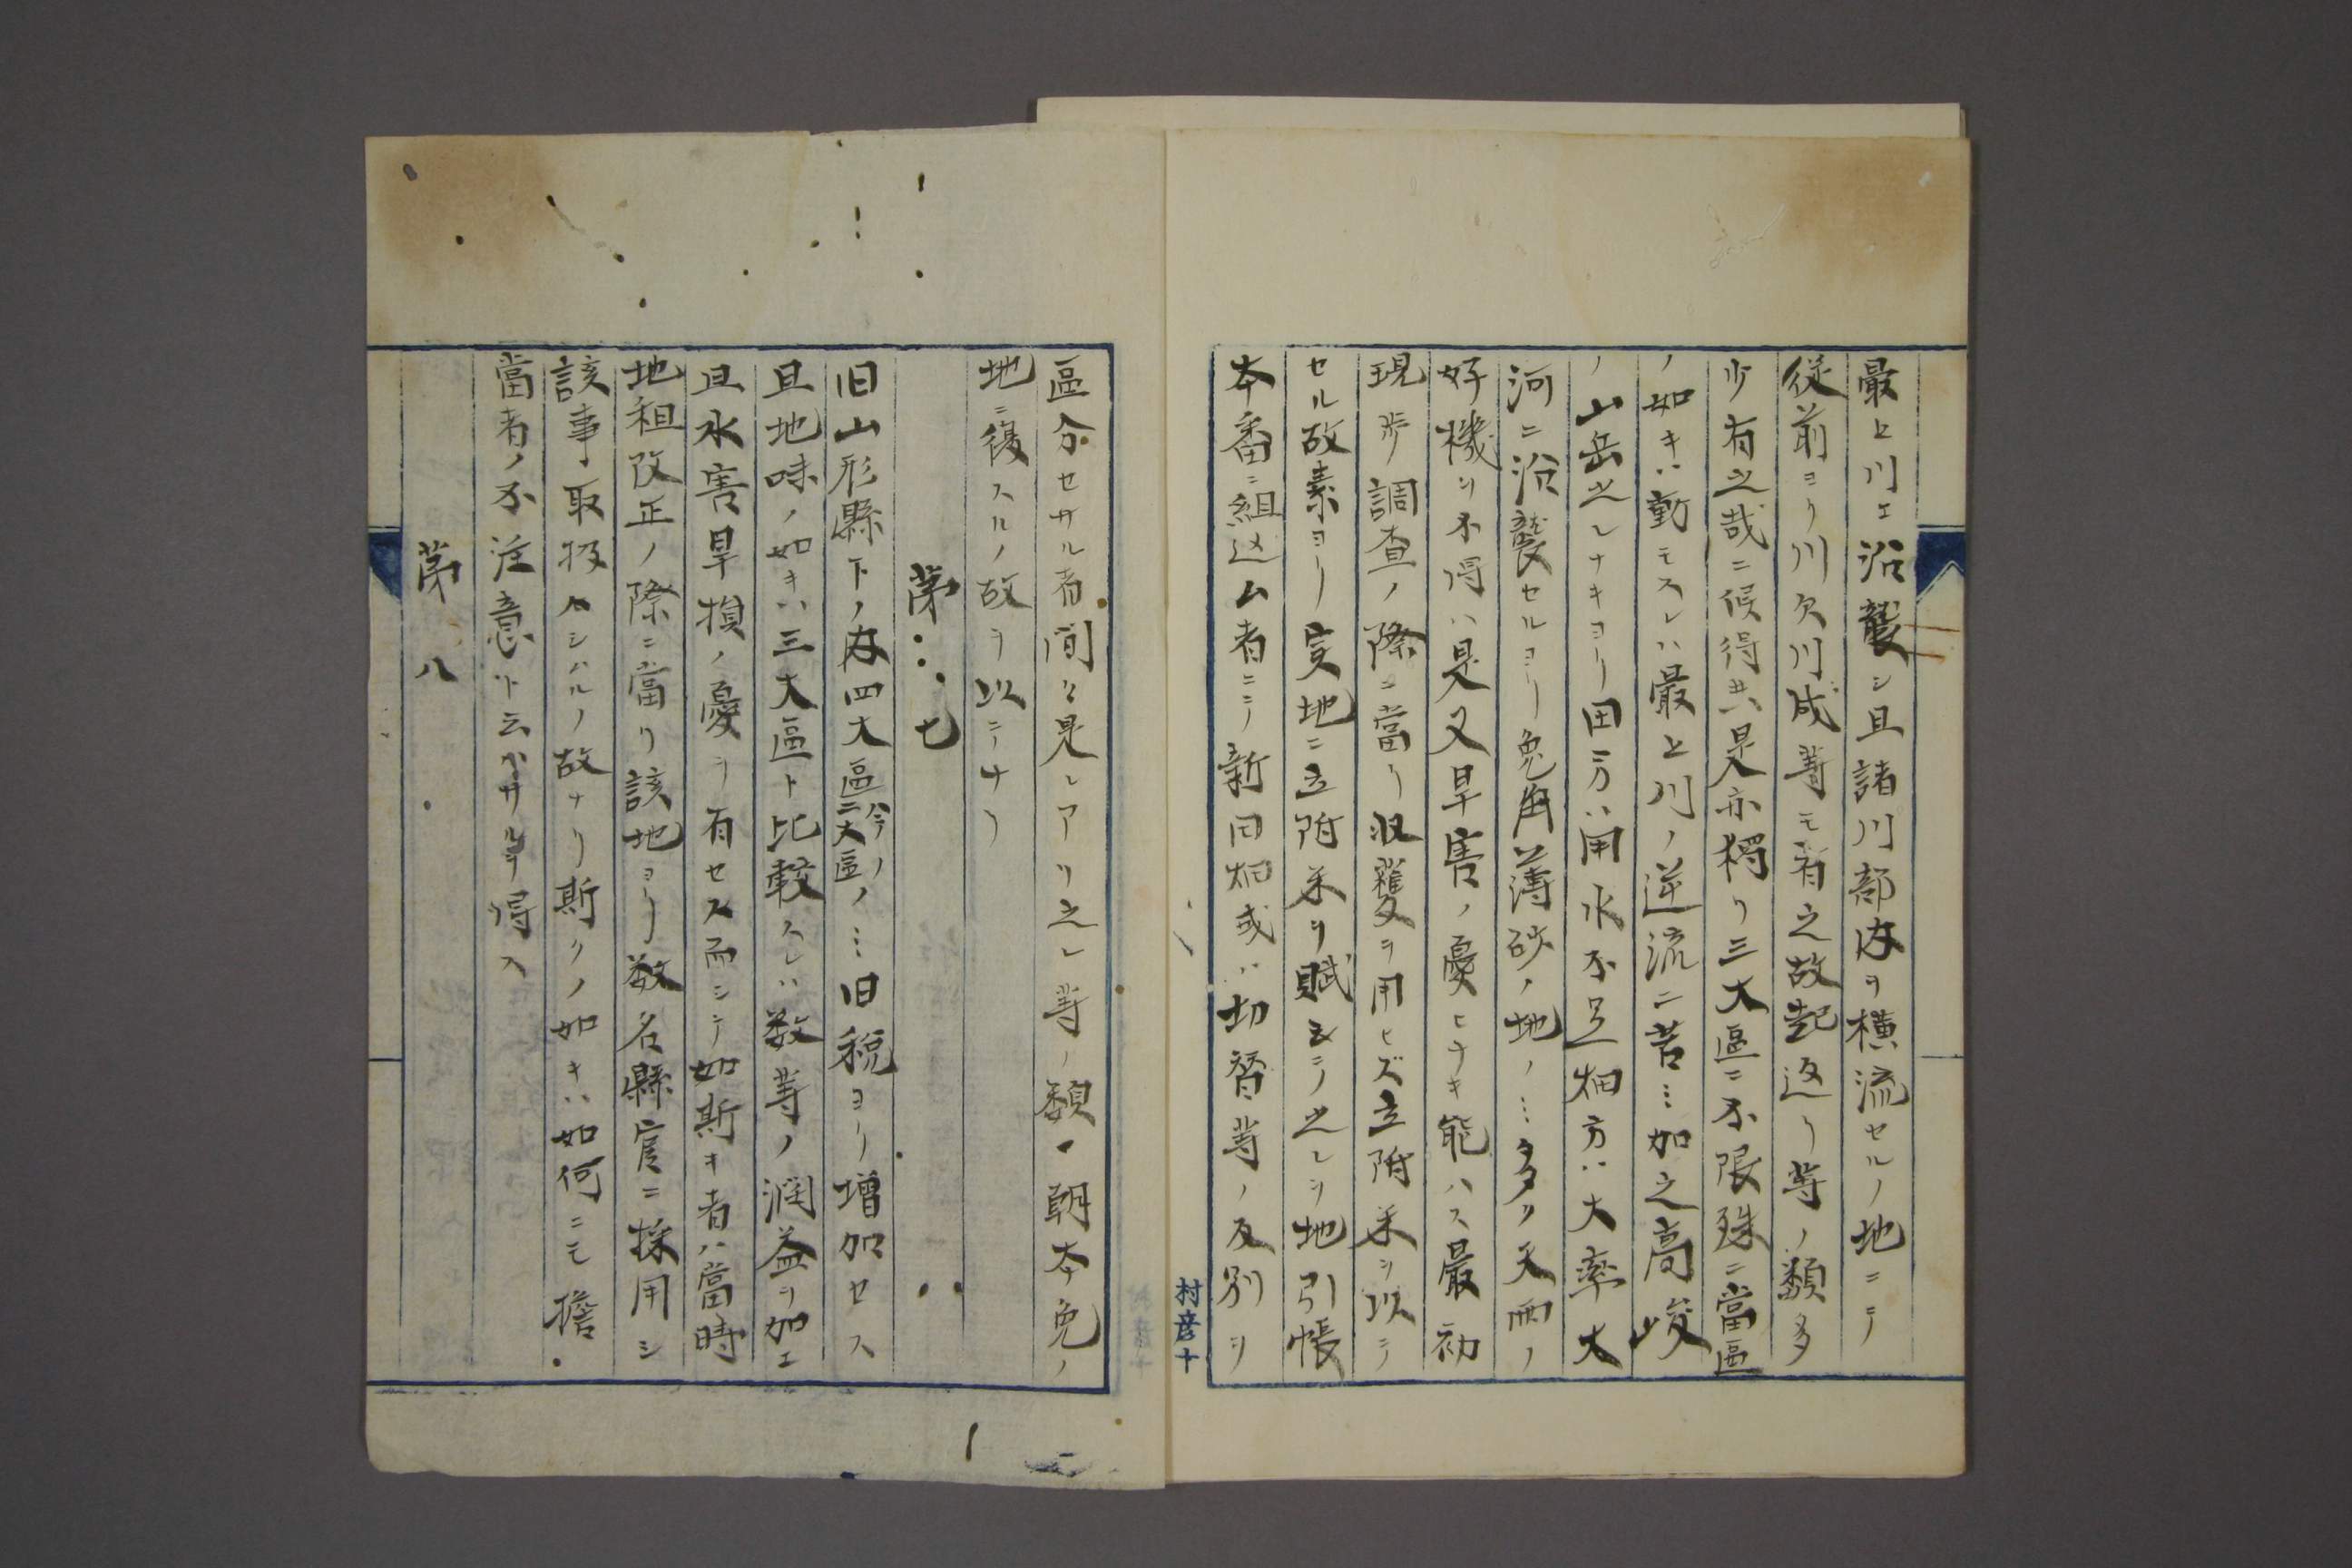 最上川エ沿襲シ且諸川部内ヲ横流セルノ地ニテ
従前ヨリ川欠川成等モ有之故起返リ等ノ類多
少有之哉ニ候得共是亦獨リ三大區ニ不限殊ニ當區
ノ如キハ動モスレハ最上川ノ逆流ニ苦ミ加之高峻
ノ山岳之レナキヨリ田方ハ用水不足畑方ハ大率大
河ニ沿襲セルヨリ兔角薄砂ノ地ノミ多ク天雨ノ
好機ヲ不得ハ是又旱害ノ憂ヒナキ能ハス最初
現歩調査ノ際ニ當リ収獲ヲ用ヒズ立附米ヲ以テ
セル故素ヨリ実地ニ立附米ヲ賦シ之レヲ地引帳
本番ニ組込ム者ニテ新田畑或ハ切替等ノ反別ヲ
村彦十
區分セサル者間々是レアリ之レ等ノ類ハ朝本免ノ
地ニ復スルノ故ヲ以テナリ
第七
旧山形縣下ノ内四大區今ノ二大區ノミ旧税ヨリ増加セス
且地味ノ如キハ三大區ト比較スレハ数等ノ潤益ヲ加エ
且水害旱損ノ憂ヲ有セス而シテ如斯キ者ハ當時
地租改正ノ際ニ當リ該地ヨリ数名縣官ニ採用シ
該事取扱ハシハルノ故ナリ斯クノ如キハ如何ニモ擔
當者ノ不注意ト云ハサルヲ得ス
第八